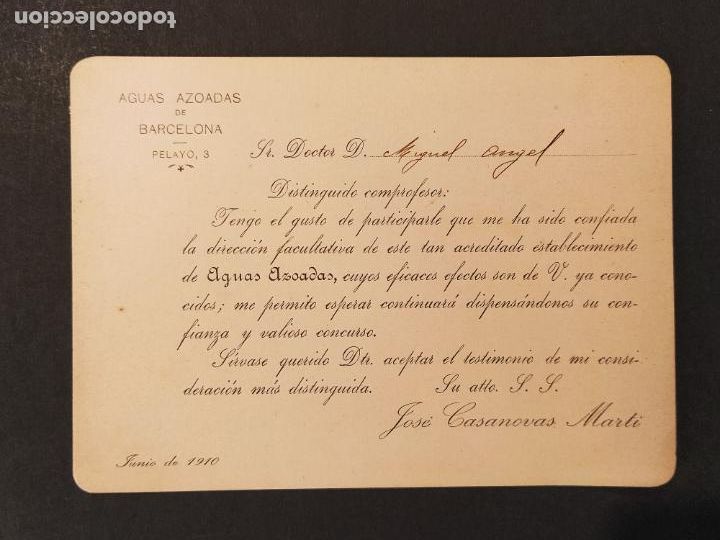 todocoleccion
AGUAS AZOADAS
DE
BARCELONA
PELAYO, 3
Sr. Doctor D. Miguel Angel
Distinguido comprofesor:
Tengo el gusto de participarle que me ha sido confiada
la dirección facultativa de este tan acreditado establecimiento
de Aguas Azoadas, cuyos eficaces efectos son de V. ya cono-
cidos; me permito esperar continuará dispensándonos su con-
fianza y valioso concurso.
Sírvase querido Dtr. aceptar el testimonio de mi consi-
deración más distinguida. Su atto. S. S.
José Casanovas Martí
Junio de 1910